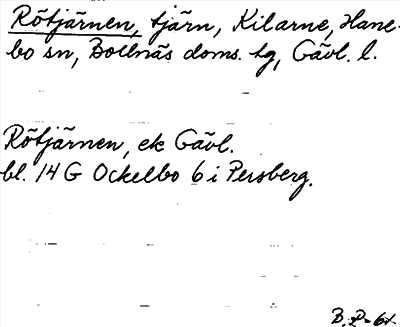 Rötjärnen, tjärn, Kilarne, Hane-
bo sn, Bollnäs doms. tg, Gävl. l.
Rötjärnen, ek Gävl.
bl. 14 G Ockelbo 6 i Persberg.
B. P-61.